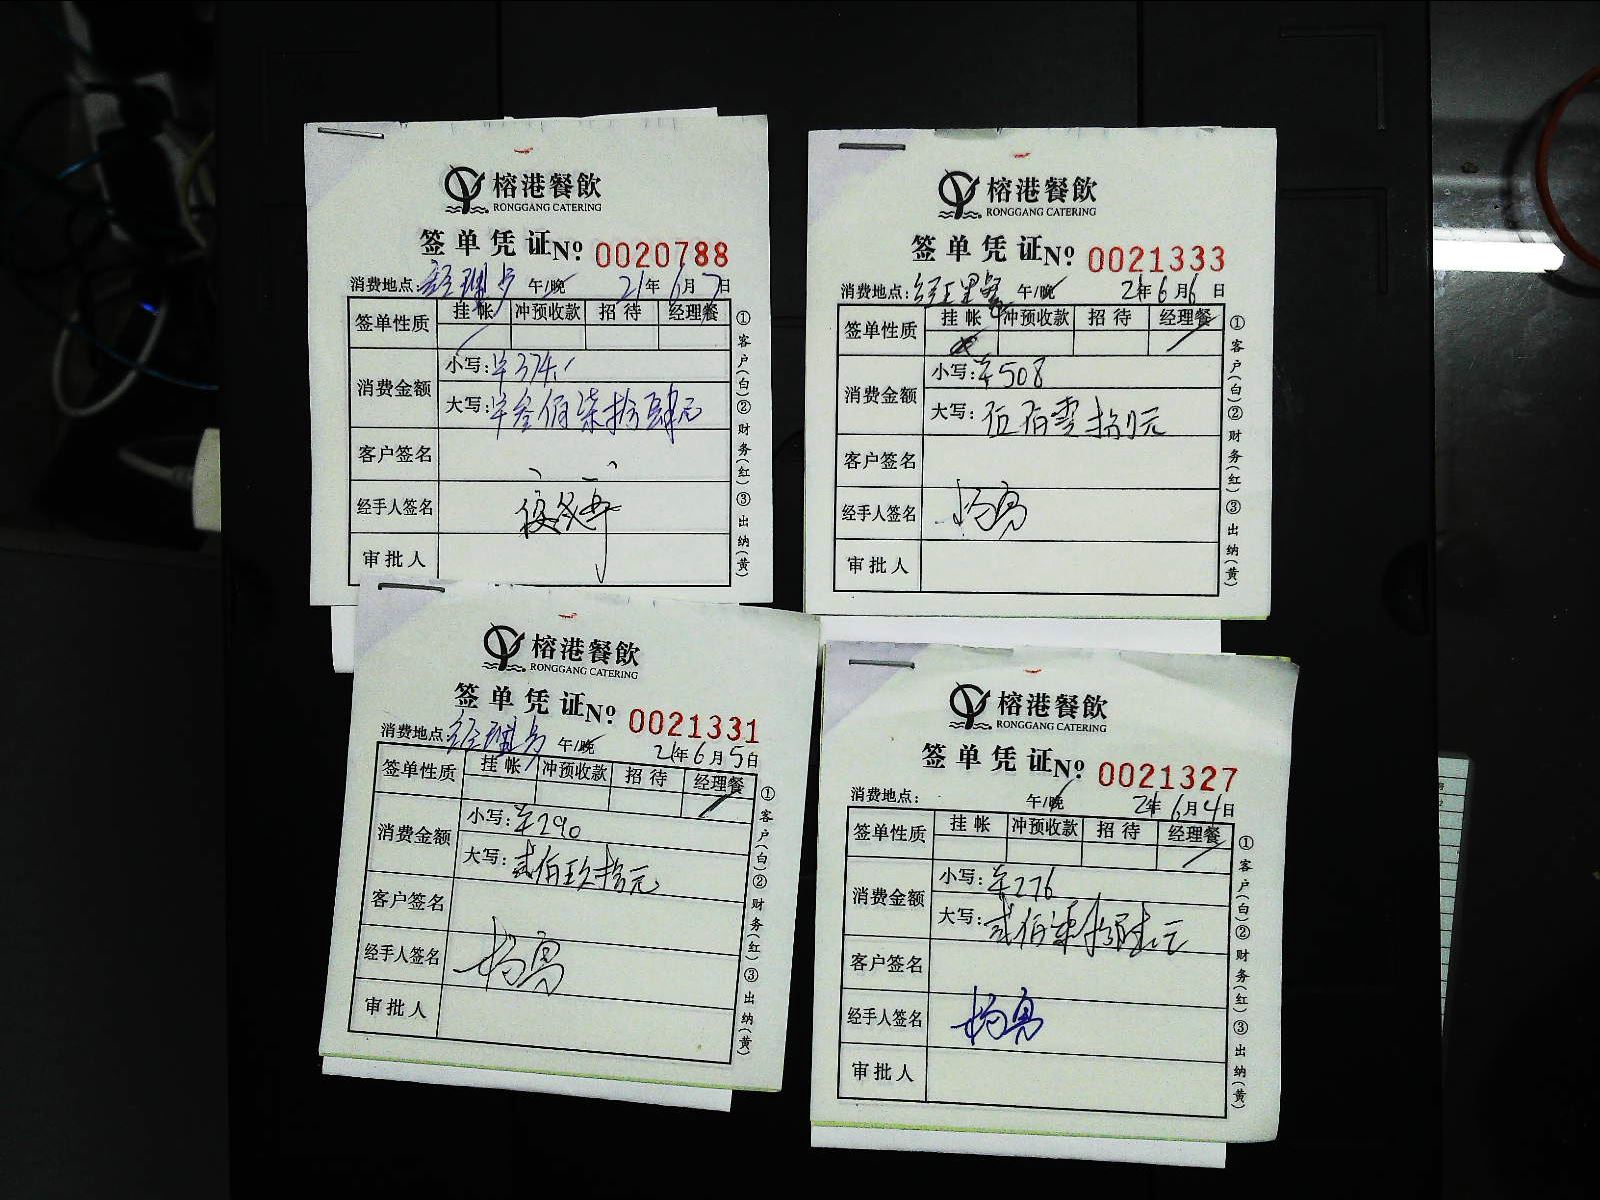 榕港餐飲
RONGGANG CATERING
签单凭证 Nº 0020788
消费地点: 午/晚 21年6月7日
签单性质 挂帐 冲预收款 招待 经理餐
消费金额 小写:¥374.
大写:叁佰柒拾肆元
客户签名
经手人签名
审批人
①客户(白)②财务(红)③出纳(黄)
榕港餐飲
RONGGANG CATERING
签单凭证 Nº 0021333
消费地点:经理餐 午/晚 21年6月6日
签单性质 挂帐 冲预收款 招待 经理餐
消费金额 小写:¥508
大写:伍佰零捌元
客户签名
经手人签名 杨亮
审批人
①客户(白)②财务(红)③出纳(黄)
榕港餐飲
RONGGANG CATERING
签单凭证 Nº 0021331
消费地点: 午/晚 21年6月5日
签单性质 挂帐 冲预收款 招待 经理餐
消费金额 小写:¥290
大写:贰佰玖拾元
客户签名
经手人签名 杨亮
审批人
①客户(白)②财务(红)③出纳(黄)
榕港餐飲
RONGGANG CATERING
签单凭证 Nº 0021327
消费地点: 午/晚 21年6月4日
签单性质 挂帐 冲预收款 招待 经理餐
消费金额 小写:¥276
大写:贰佰柒拾陆元
客户签名
经手人签名 杨亮
审批人
①客户(白)②财务(红)③出纳(黄)